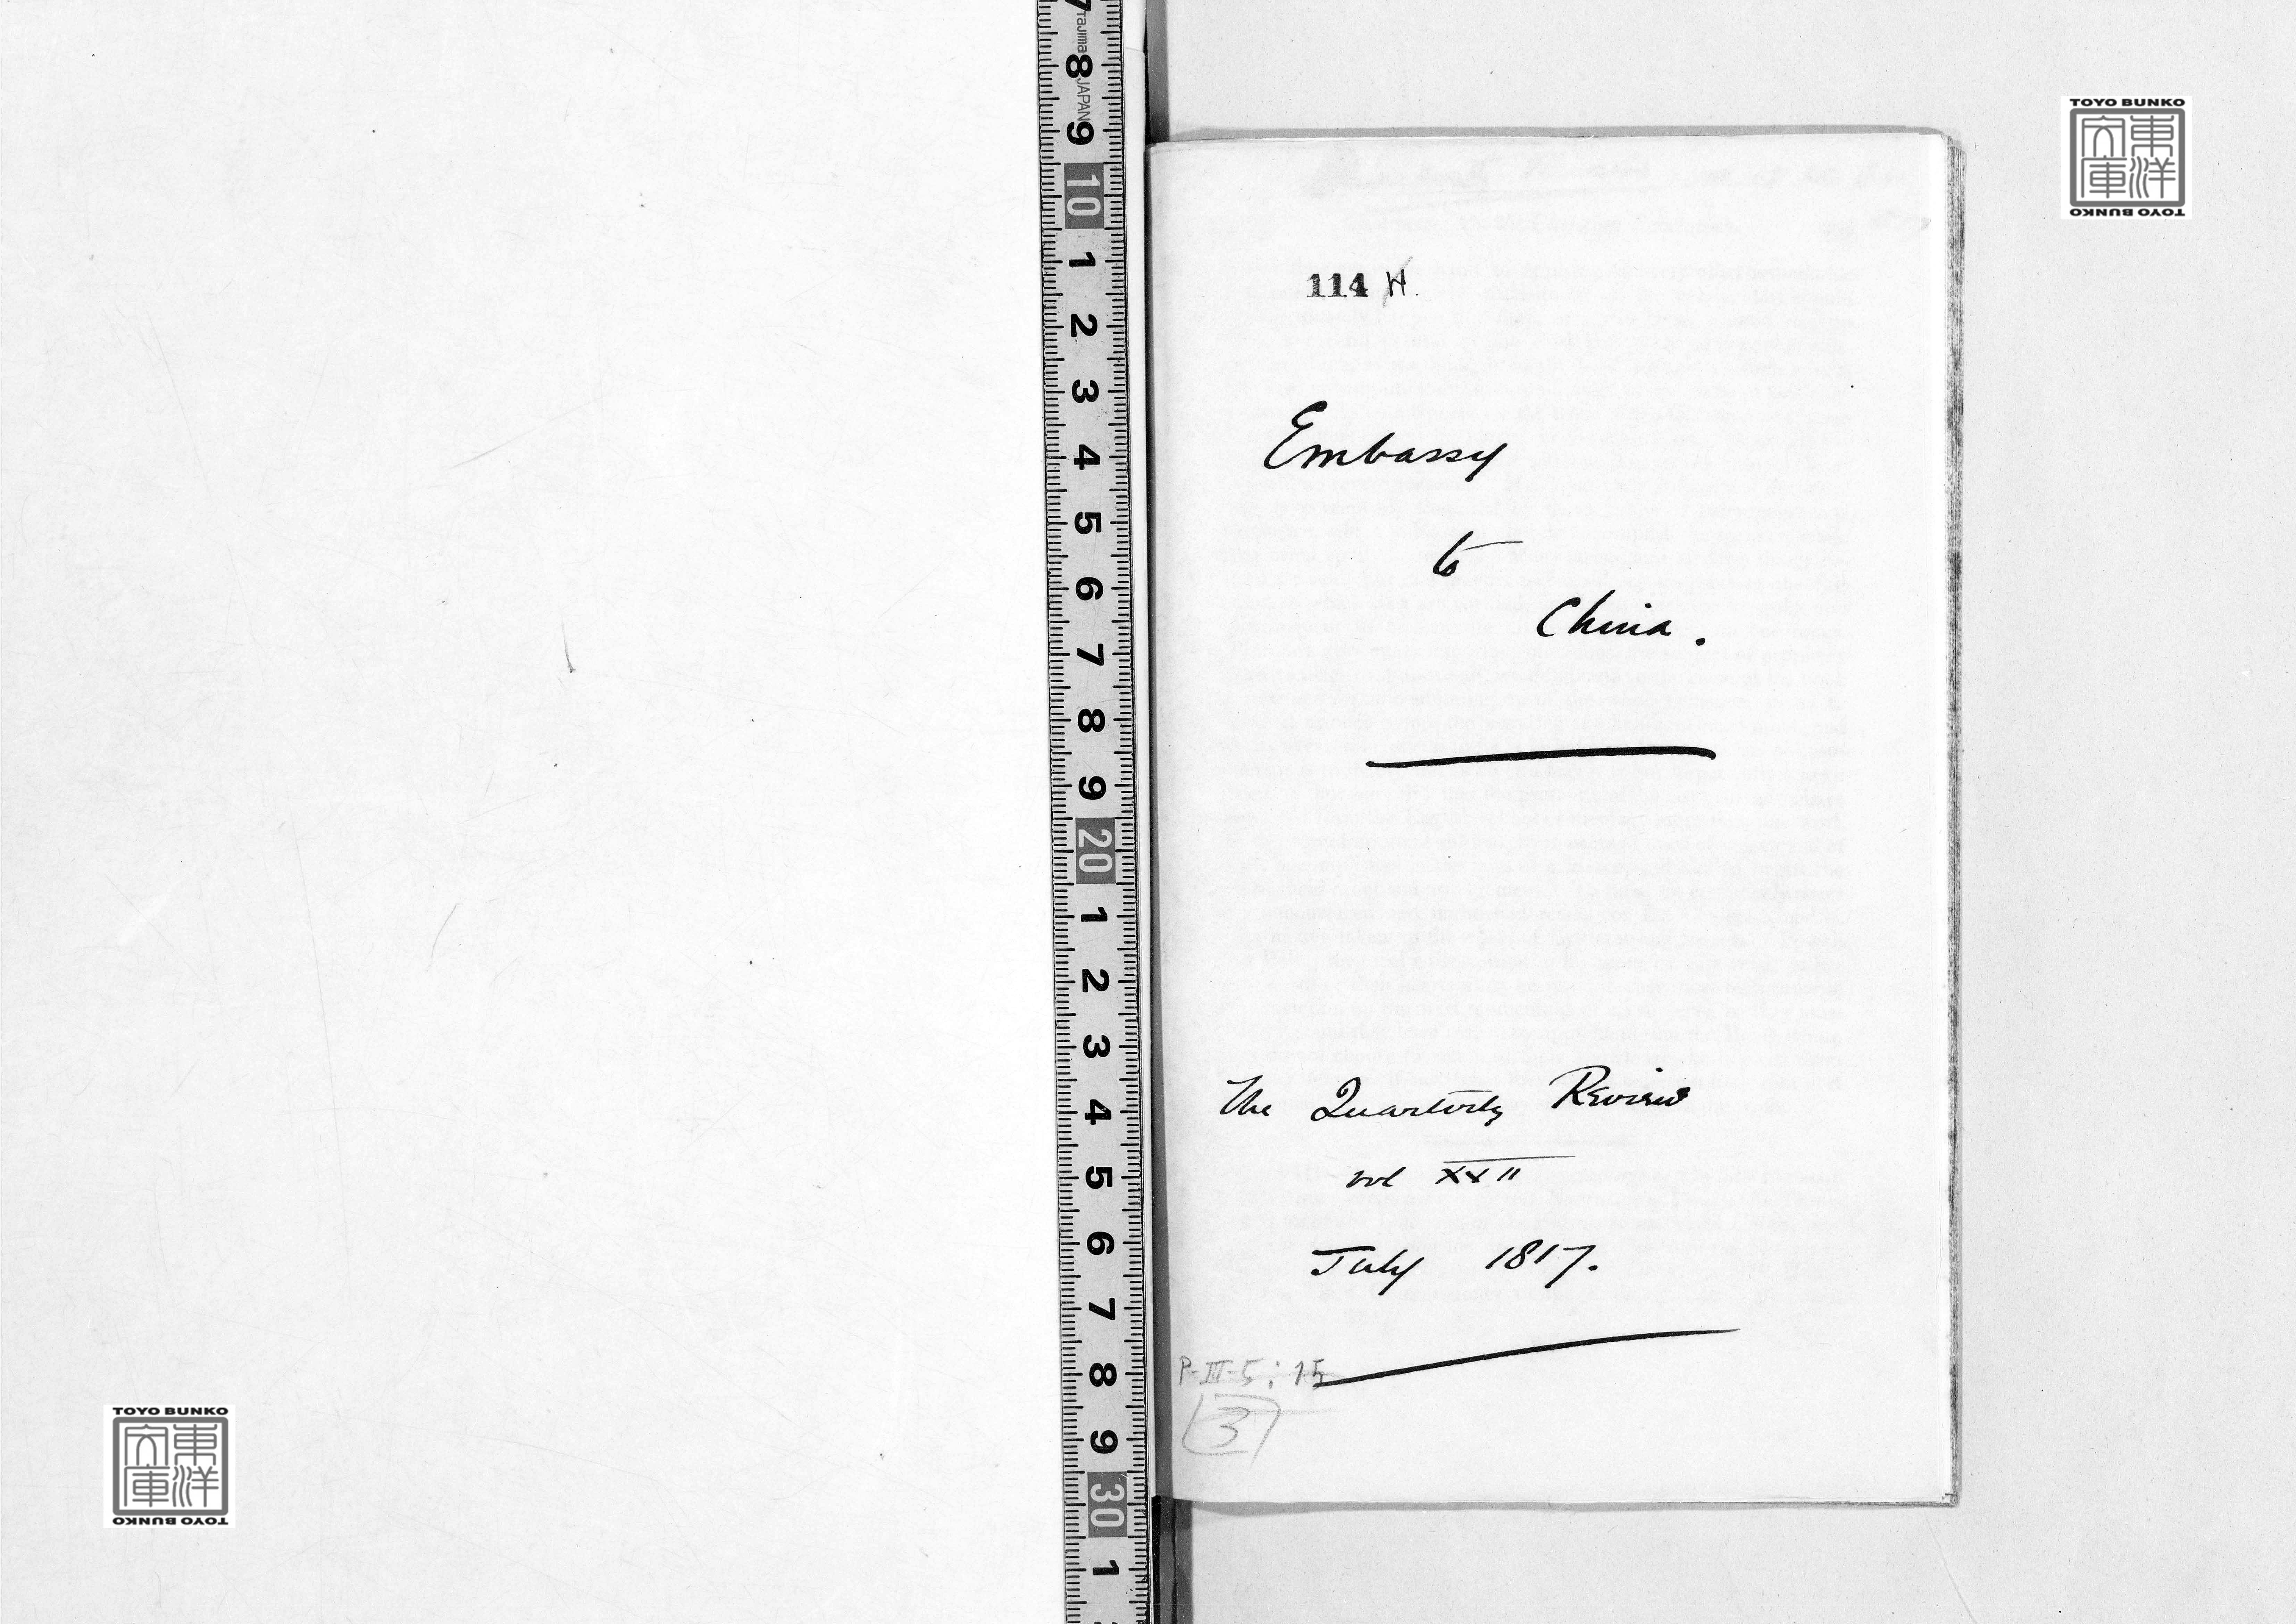 TOYO BUNKO
東洋文庫
TOYO BUNKO
Tajima JAPAN
7 8 9 10 1 2 3 4 5 6 7 8 9 20 1 2 3 4 5 6 7 8 9 30 1
114 H.
Embassy
to
China.
The Quarterly Review
vol XXII
July 1817.
P-III-5; 15
3
TOYO BUNKO
東洋文庫
TOYO BUNKO